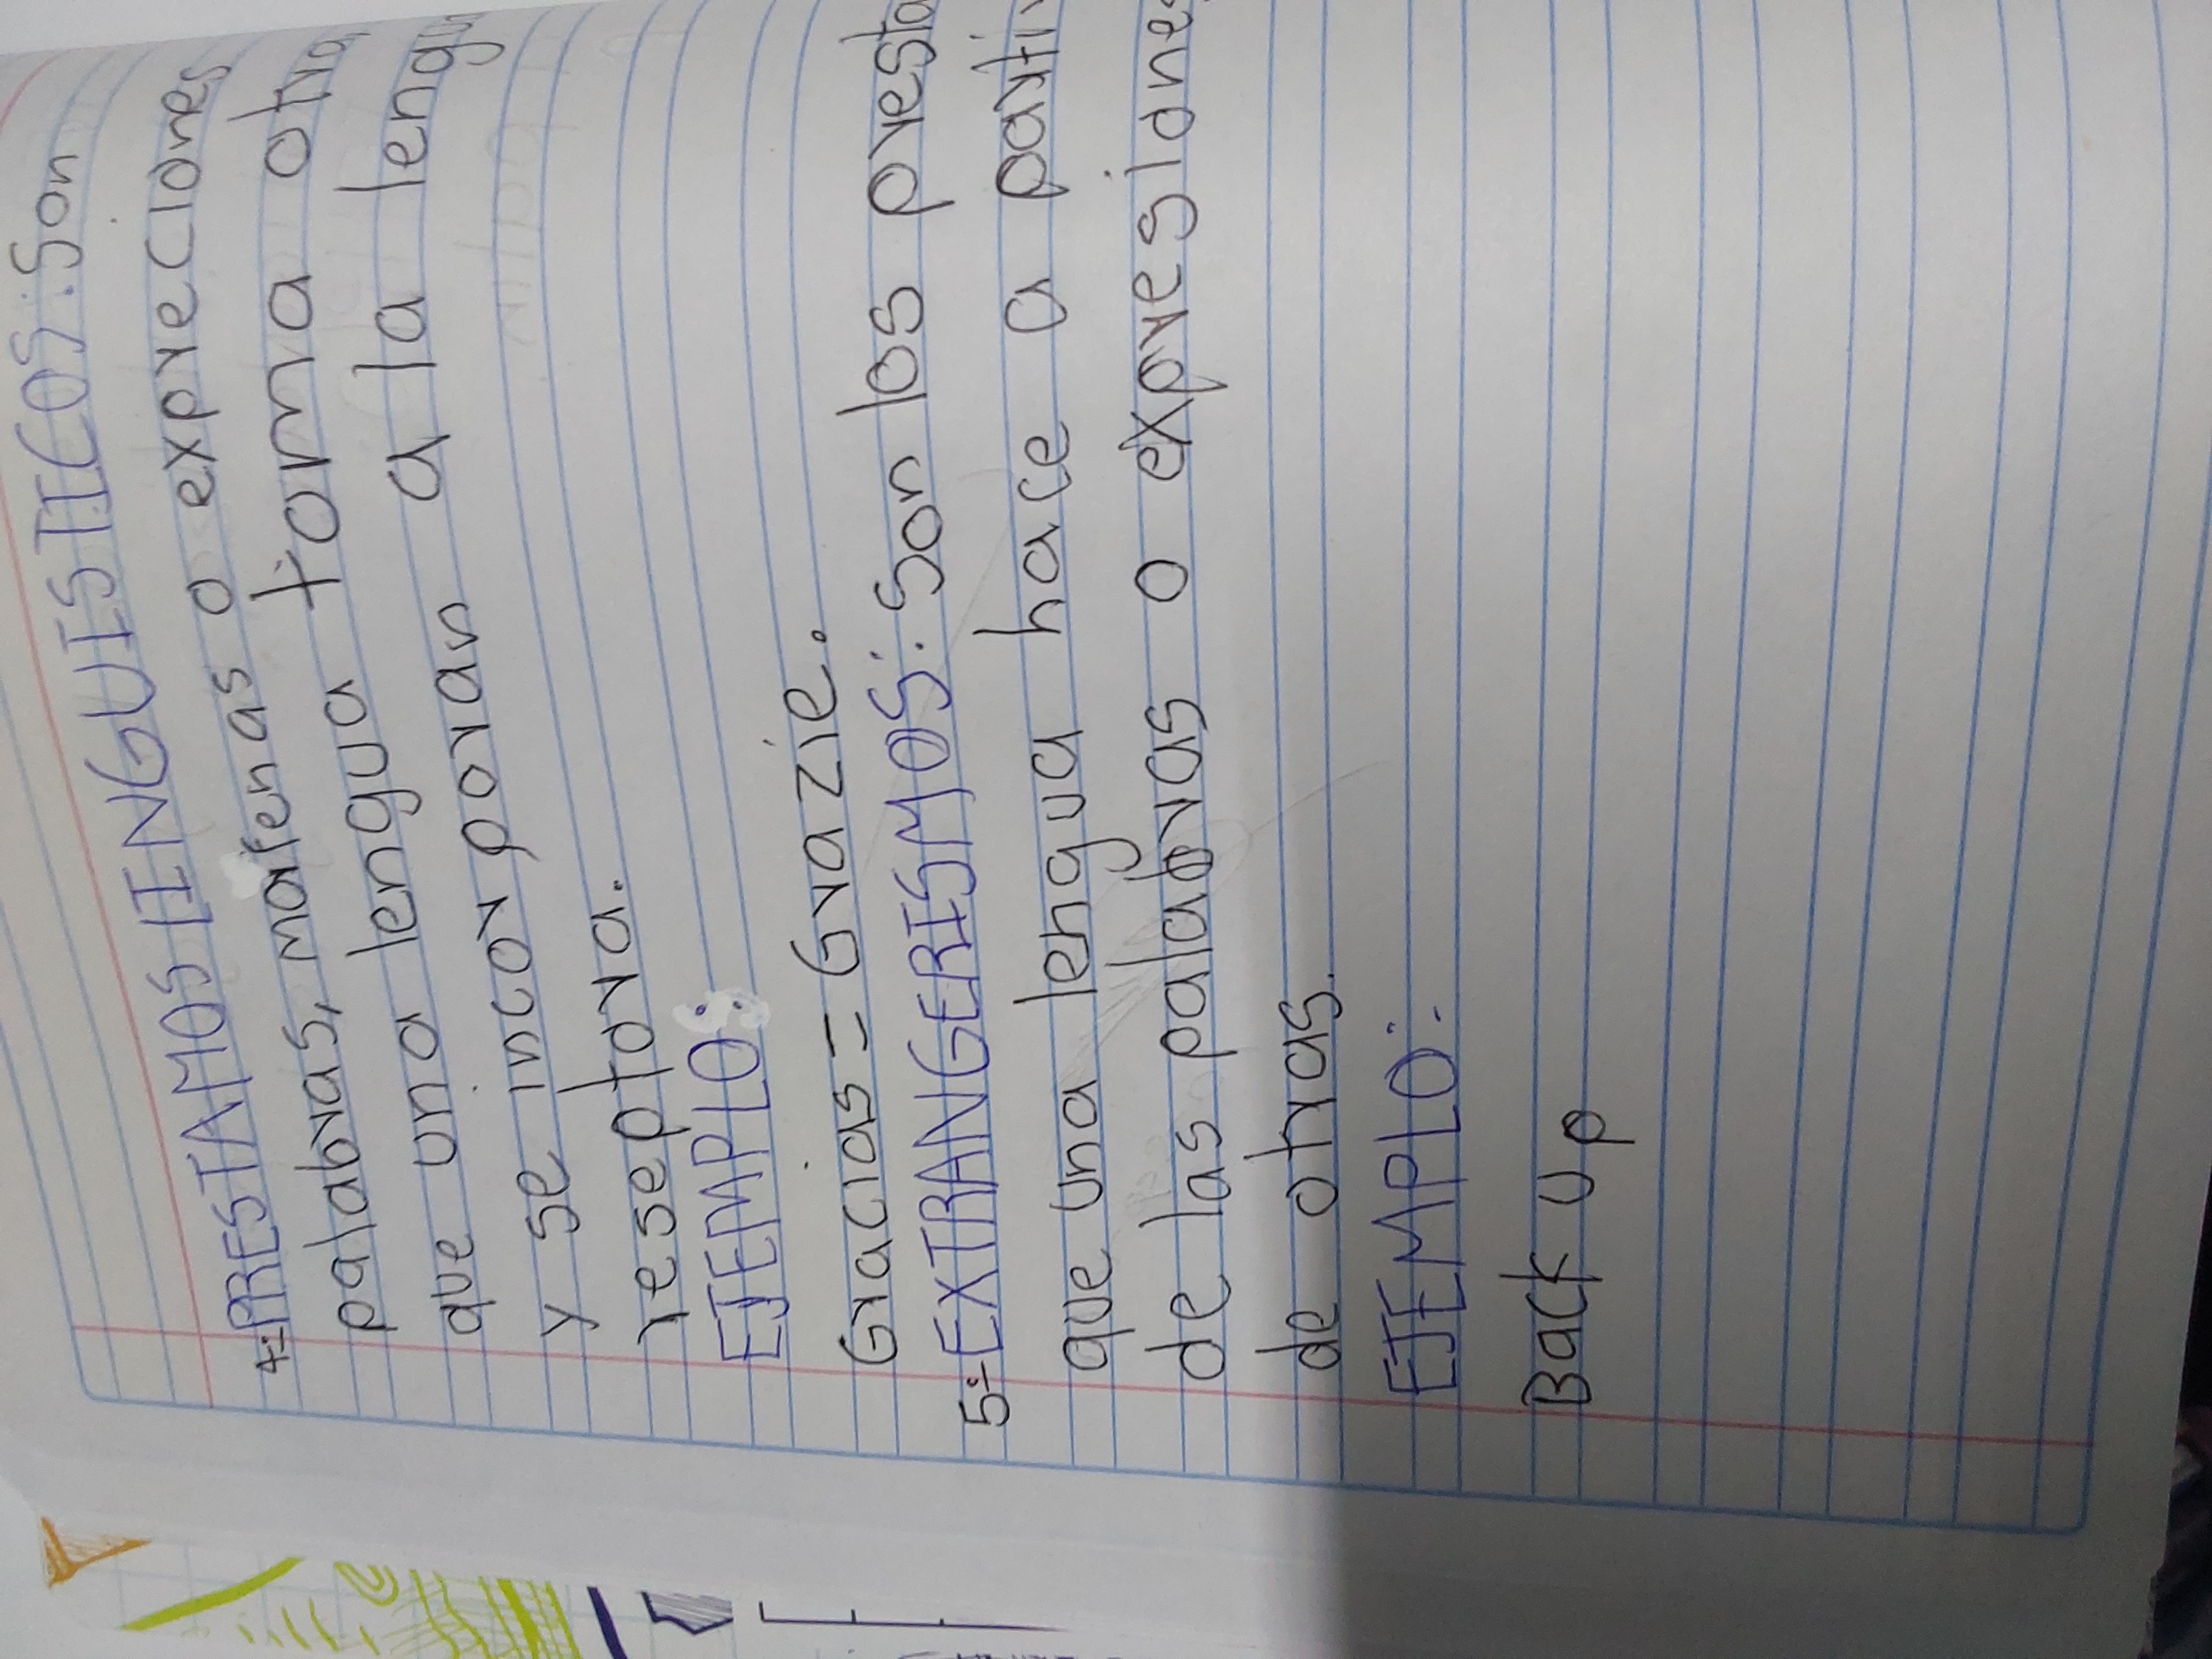 4:- PRESTAMOS LINGUISTICOS: Son
palabras, morfenas o expreciones
que una lengua toma otra
y se incorporan a la lengu
reseptora.
EJEMPLO:
Gracias = Grazie.
5:- EXTRANGERISMOS: Son los presta
que una lengua hace a parti
de las palabras o expresiones
de otras.
EJEMPLO:
Back Up